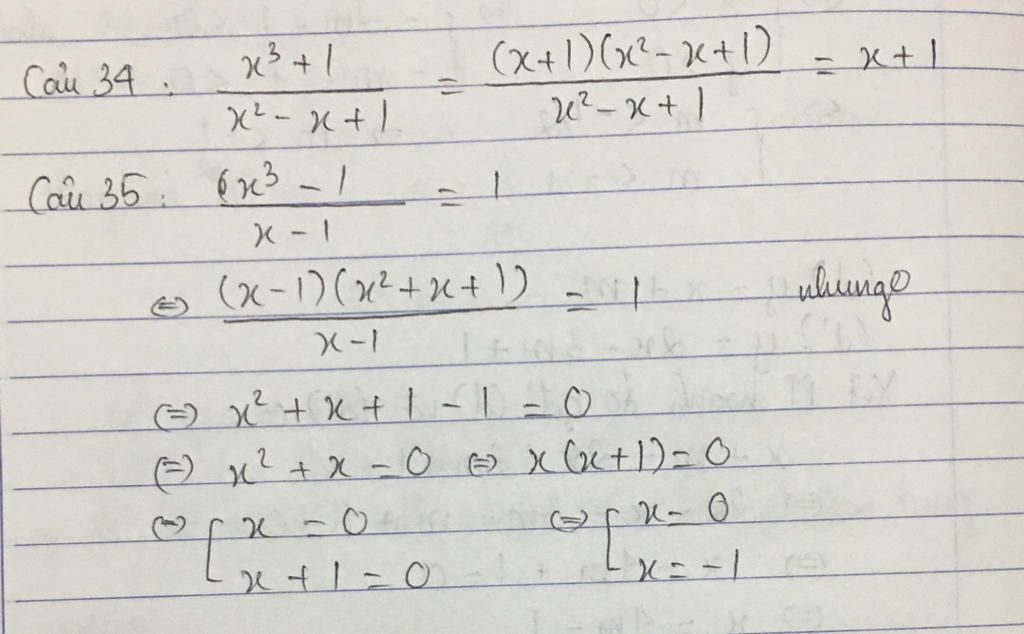 Câu 34 : (x³ + 1)/(x² - x + 1) = ((x+1)(x² - x + 1))/(x² - x + 1) = x + 1
Câu 35 : (x³ - 1)/(x - 1) = 1
⇔ ((x-1)(x² + x + 1))/(x-1) = 1 nhung
⇔ x² + x + 1 - 1 = 0
⇔ x² + x = 0 ⇔ x(x+1) = 0
⇔ [ x = 0 ⇔ [ x = 0
x + 1 = 0 x = -1